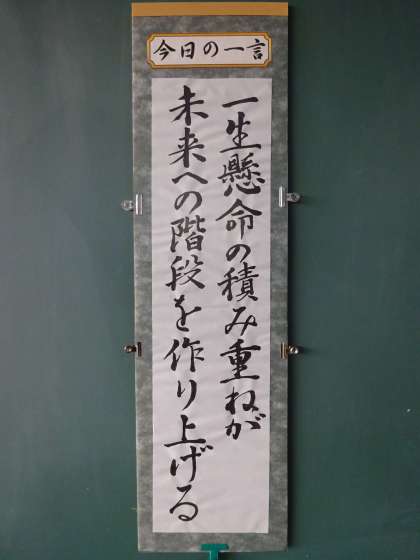 今日の一言
一生懸命の積み重ねが
未来への階段を作り上げる